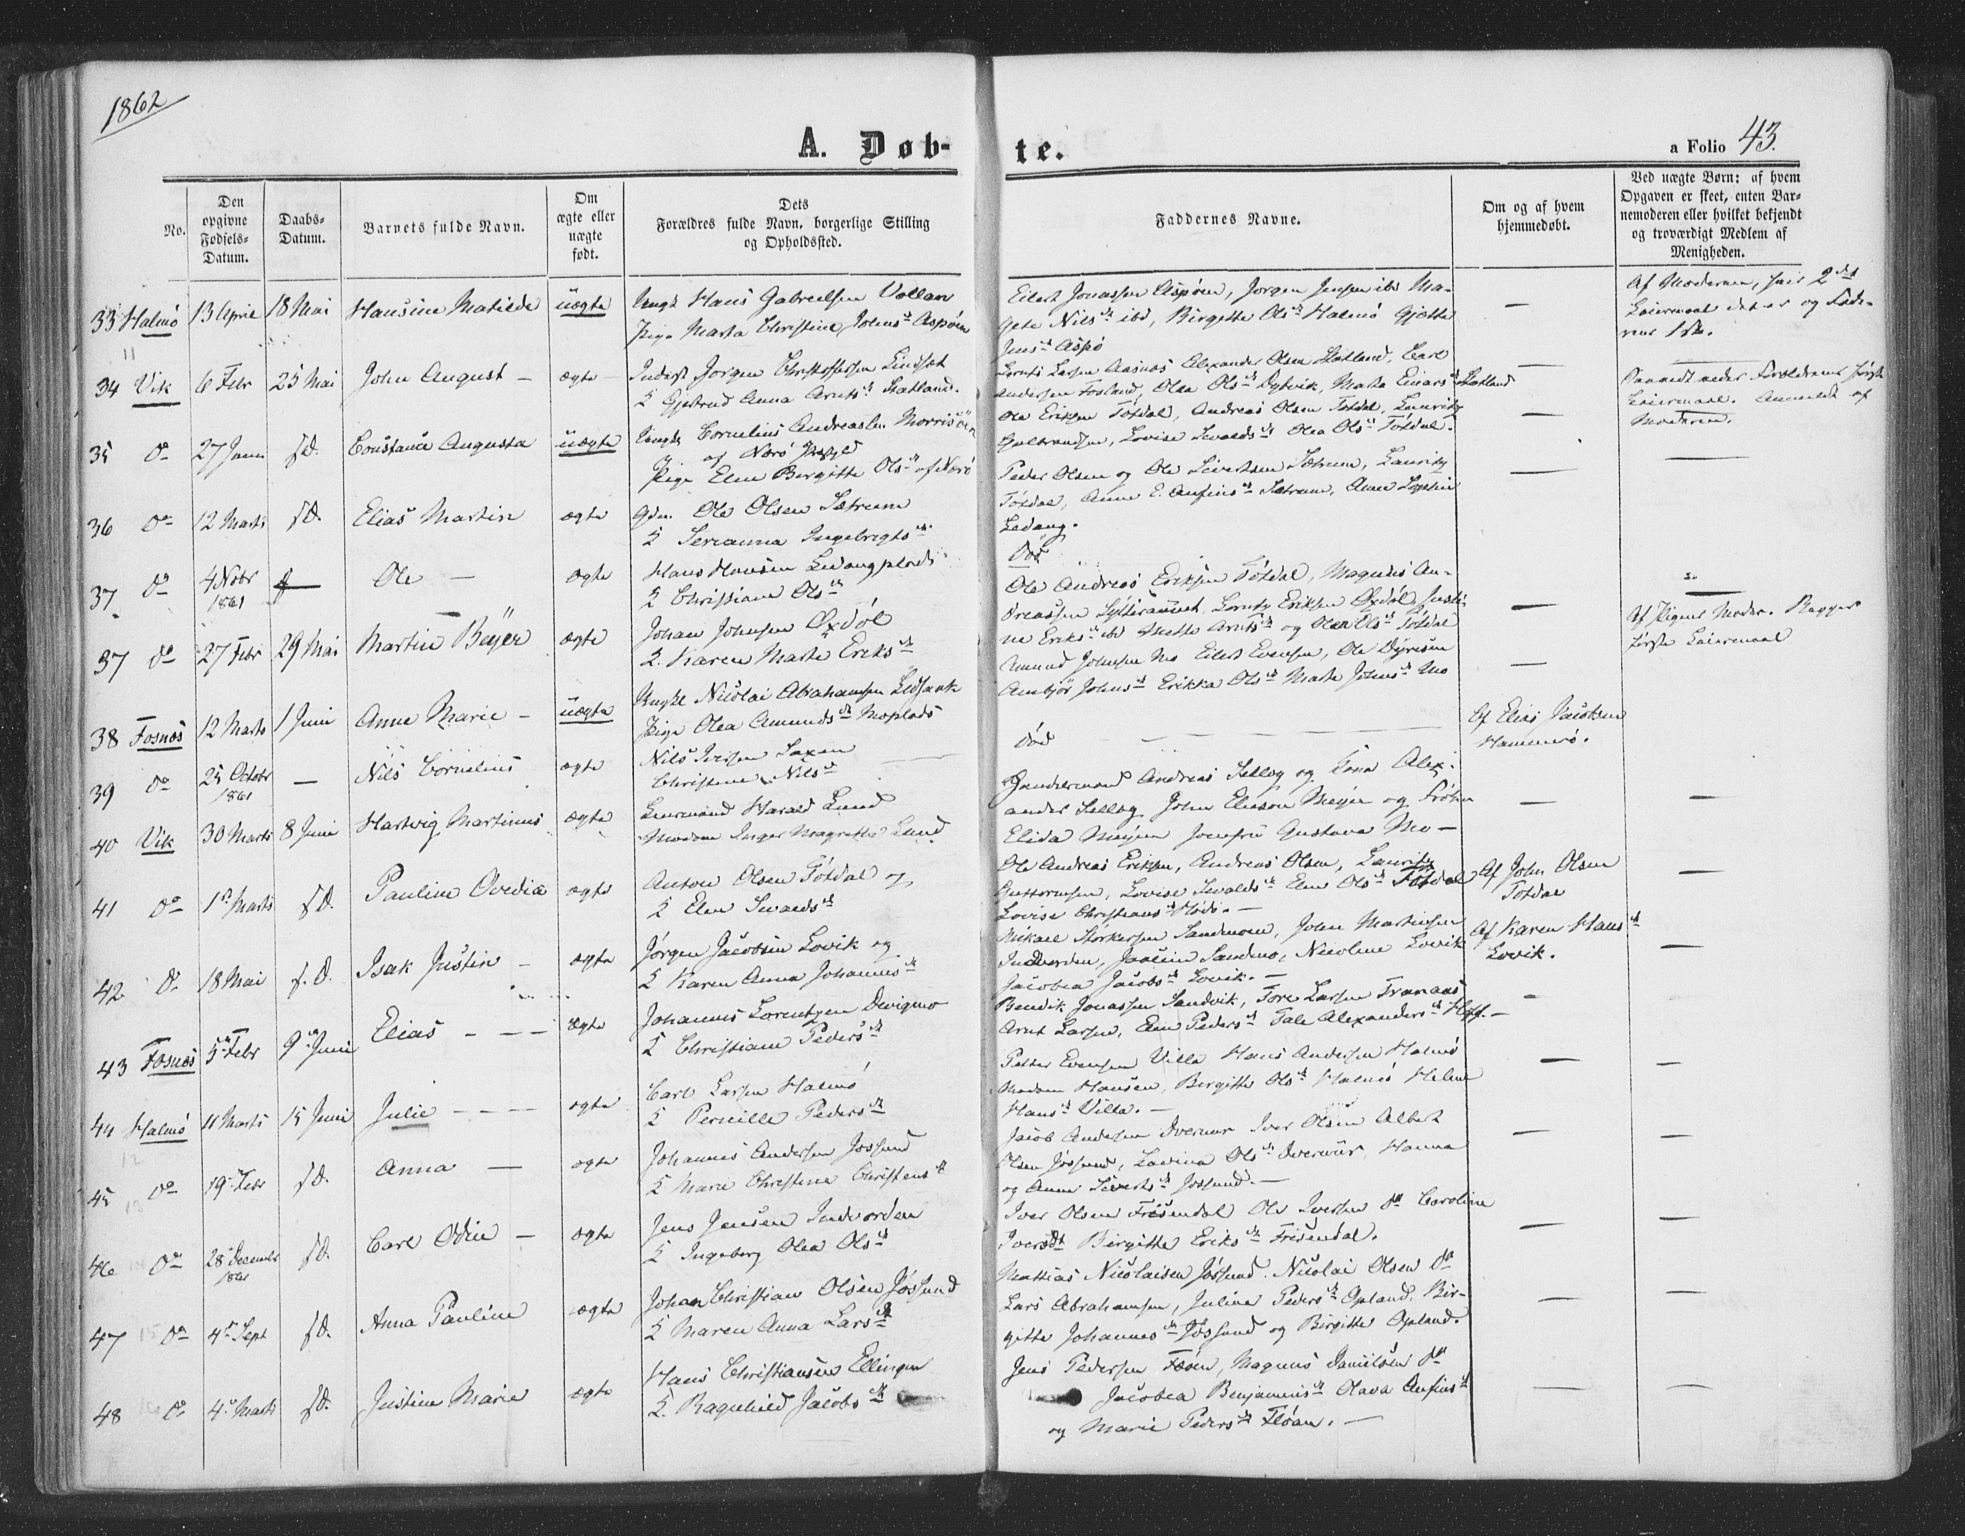 1862
A. Døb-
te.
a Folio 43.
No.
Den opgivne Fødsels-Datum.
Daabs-Datum.
Barnets fulde Navn.
Om ægte eller uægte født.
Dets Forældres fulde Navn, borgerlige Stilling og Opholdssted.
Faddernes Navne.
Om og af hvem hjemmedøbt.
Ved uægte Børn: af hvem Opgaven er skeet, enten Barnemoderen eller hvilket bekjendt og troværdigt Medlem af Menigheden.
33 Halmö 13 April 18 Mai Hansine Matilde uægte
Ungk Hans Gabrielsen Vollan
Pige Marta Christine Johns Aspöen
Eilert Jonassen Aspöen, Jørgen Jensen ibd Ma-
gete Nilsd ibd, Birgitte Olsd Halmö Gjøtte
Jensd Aspö
Af Moderen, 2det
Leiermaal
34 Vik 6 Febr 25 Mai John August ægte
Inderst Jørgen Christoffersen Lindset
K Gjertrud Anna Arntsd Statland.
Lorents Larsen Aasnæs Alexander Olsen Statland, Carl
Andersen Fosland, Olea Olsd Dytvik, Marta Einarsd Statland
35 do 27 Janu s.D. Constance Augusta uægte
Ungk Cornelius Andreassen Morrisöen
af Nærö
Pige Elen Birgitte Olsd af Nærö
Ole Eriksen Tötdal, Andreas Olsen Tötdal, Lauritz
Gulbrandsen, Lovise Sivaldsd Olea Olsd Tötdal.
Leiermaal. Anmeldt af
Moderen.
36 do 12 Marts s.D. Elias Martin ægte
Gdm. Ole Olsen Sætrum
K Serianna Ingebrigtsd
Peder Olsen og Ole Sivertsen Sætrum, Lauritz
Tötdal, Anne E. Anfinsd Sætrum, Anne
Ledang.
37 do 4 Nobr 1861 Ole ægte
Hans Hansen Ledangplads
K Christiane Olsd
Död
37 do 27 Febr 29 Mai Martin Beyer ægte
Johan Johnsen Oxdöl
K. Karen Marta Eriksd
Ole Andreas Eriksen Tötdal, Magnus An-
dreassen, Lorentz Eriksen Oxdöl, Justi-
ne Eriksd ibd Mette Arntsd og Olea Olsd Tötdal
38 Fosnæs 12 Marts 1 Juni Anne Marie uægte
Ungk Nicolai Abrahamsen
Pige Olea Amundsd Moplads
Amund Johnsen Mo Eilert Evensen, Ole
Ambjör Johnsd Erikka Olsd Marta Johnsd Mo
Af Pigens Moder. Begges
første Leiermaal
39 do 25 Octobr 1861 Nils Cornelius ægte
Nils Iversen Saxen
Christine Nilsd
död
Af Elias Jacobsen
Hammerö.
40 Vik 30 Marts 8 Juni Hartvig Martinus ægte
Harald Lund
Madam Inger Magrethe Lund
Andreas Selløg og Alex-
ander Selløg, John Elieson Meyer og Frøken
Elida Meyer Jomfru Gustava Mo
41 do 1st Marts s.D. Pauline Ovedia ægte
Anton Olsen Tötdal og
K Elen Sivaldsd
Ole Andreas Eriksen, Andreas Olsen, Lauritz
Guttormsen, Lovise Sivaldsd Elen Olsd Tötdal
Lovise Christiansd
Af John Olsen
Totdal
42 do 18 Mai s.D. Isak Justin ægte
Jørgen Jacobsen Lovik og
K Karen Anna Johannesd
Mikael Störkersen Sandmoen, John Martinsen
Indvorden, Sandmo, Nicoline Lovik
Jacobea Jacobsd Lovik.
Af Karen Hansd
Lovik.
43 Fosnæs 5te Febr 9de Juni Elias ægte
Johannes Lorentzen Devigmo
K Christiane Pedersd
Bendik Jonassen Sandvik, Tore Larsen Tranaas
Arnt Larsen, Elen Pedersd Tale Alexandersd
44 Halmö 11 Marts 15 Juni Julie ægte
Carl Larsen Halmö
K Pernille Pedersd
Petter Evensen Villa Hans Andersen Halmö
Madam Hansen, Birgitte Olsd Halmö Helene
Hansd Villa.
45 do 19 Febr s.D. Anna ægte
Johannes Andersen Jøssund
K Marie Christine Christensd
Jacob Andersen Iver Olsen Albert
Olsen Jøssund, Lavina Olsd Hanna
og Anne Sivertsd Jøssund.
46 do 28 December 1861 s.D. Carl Odin ægte
Jens Jensen Indvorden
K Ingeborg Olea Olsd
Iver Olsen Frisendal Ole Iversen do Caroline
Iversd Birgitte Eriksd Frisendal.
47 do 4de Sept s.D. Anna Pauline ægte
Johan Christian Olsen Jøssund
K Maren Anna Larsd
Mathias Nicolaisen Jøssund. Nicolai Olsen do
Lars Abrahamsen, Juline Pedersd Opland, Bir-
gitte Johannesd Jøssund og Birgitte Opland.
48 do 4de Marts s.D. Justine Marie ægte
Hans Christiansen Ellingen
K. Ragnhild Jacobsd
Jens Pedersen Magnus Danielsen do
Jacobea Benjaminsd Olava Anfinsd
og Marie Pedersd Flöan.